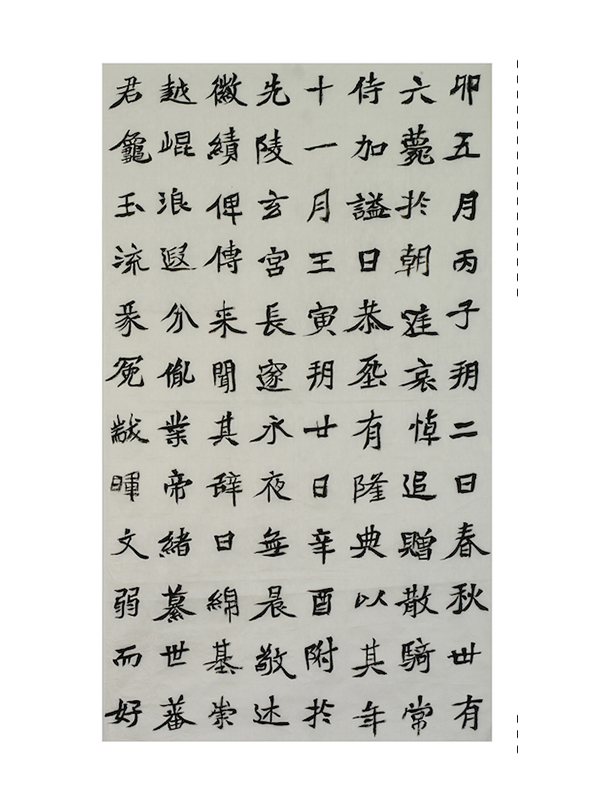 卯五月丙子朔二日春秋卅有
六薨於朝廷哀悼追贈散騎常
侍加謚曰恭有隆典以其年
十一月壬寅朔廿日辛酉附於
先陵玄宮長邃永夜無晨敬述
徽績俾傳来聞其辞曰綿基崇
越崐浪遐分胤業帝緒纂世蕃
君龕玉流彖冕黻暉文弱而好